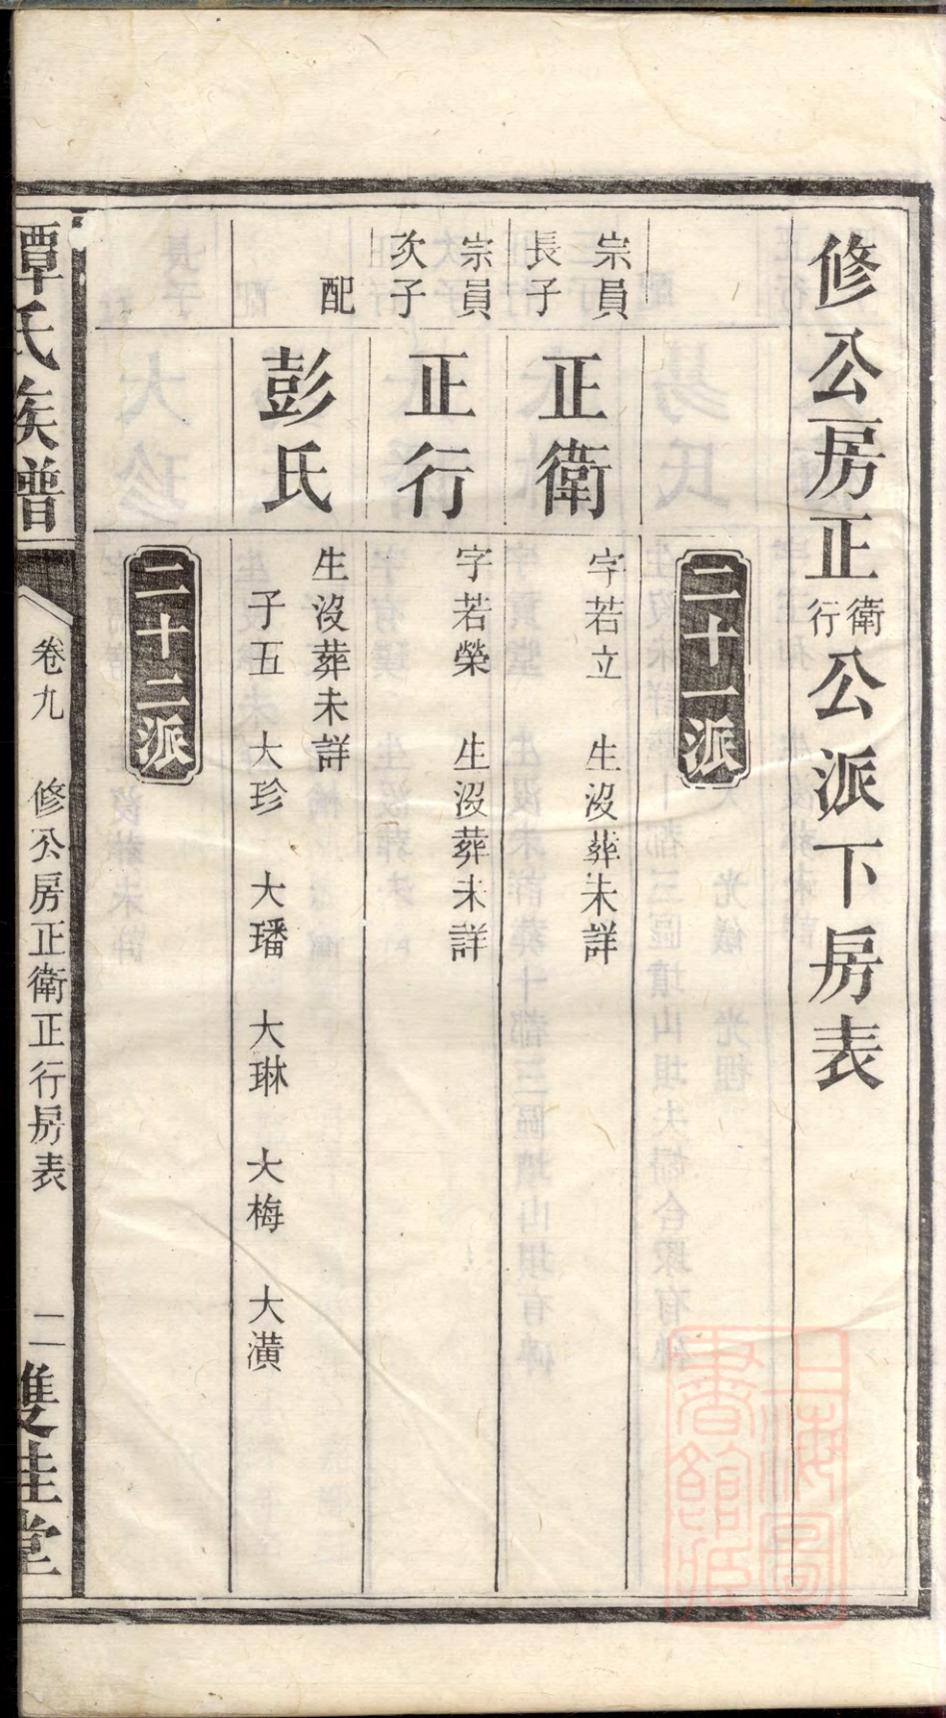 修公房正衛行公派下房表
二十一派
宗員長子
正衛
字若立　生沒葬未詳
宗員次子
正行
字若榮　生沒葬未詳
配
彭氏
生沒葬未詳
子五　大珍　大璠　大琳　大梅　大潢
二十二派
譚氏族譜
卷九　修公房正衛正行房表
二
雙桂堂
上海圖書館藏